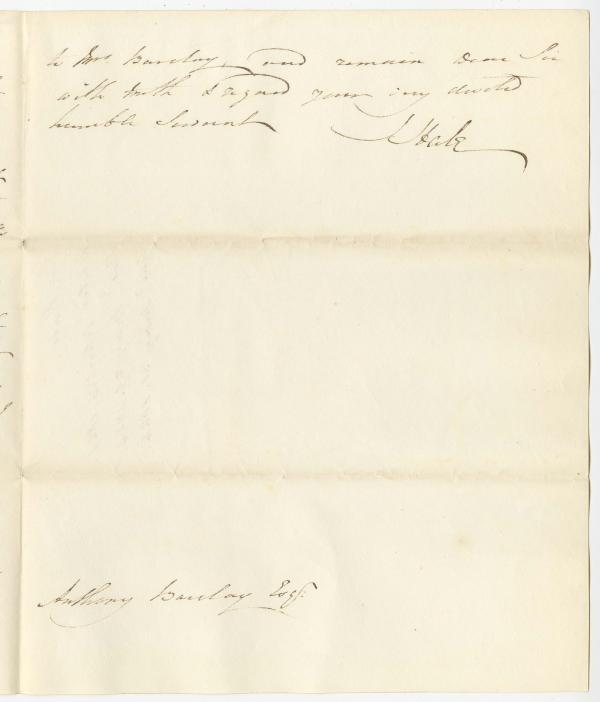 to Mrs Barclay, and remain Dear Sir
with much regard your very devoted
humble Servant
J Hale
Anthony Barclay Esqr.